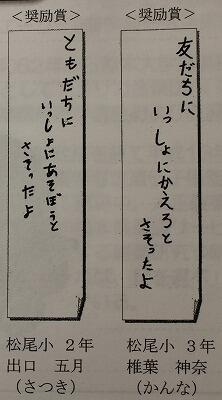 ＜奨励賞＞
友だちに
いっしょにかえろと
さそったよ
松尾小　３年
椎葉　神奈
（かんな）
＜奨励賞＞
ともだちに
いっしょにあそぼうと
さそったよ
松尾小　２年
出口　五月
（さつき）